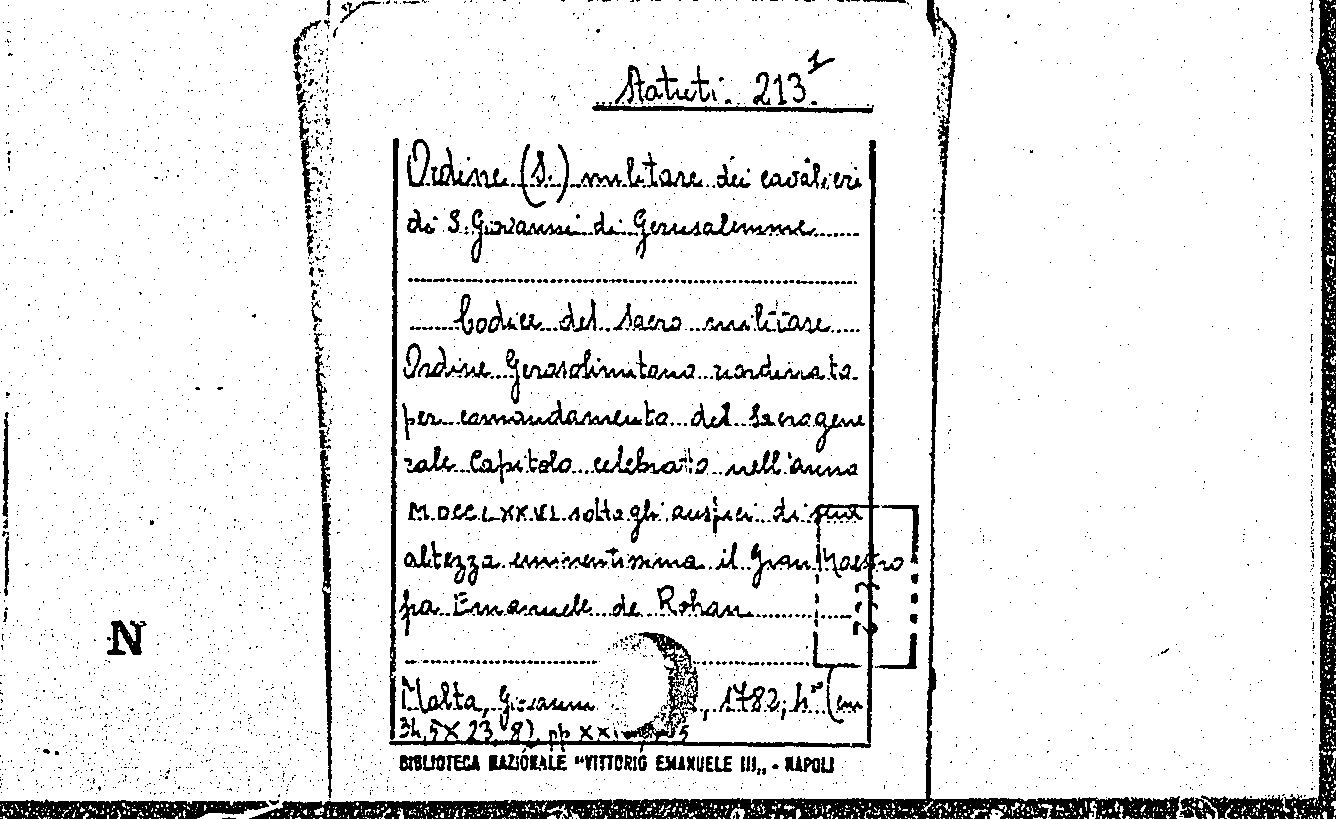 Statuti. 213.1
Ordine (S.) militare dei cavalieri
di S. Giovanni di Gerusalemme
Codice del Sacro militare
Ordine Gerosolimitano riordinato
per comandamento del Sacro gene
rale Capitolo celebrato nell'anno
MDCCLXXVI sotto gli auspici di sua
altezza eminentissima il Gran Maestro
fra Emanuele de Rohan
N
Malta, Giovanni , 1782; (cm
34,5X 23,8), pp XXI
BIBLIOTECA NAZIONALE "VITTORIO EMANUELE III„ - NAPOLI